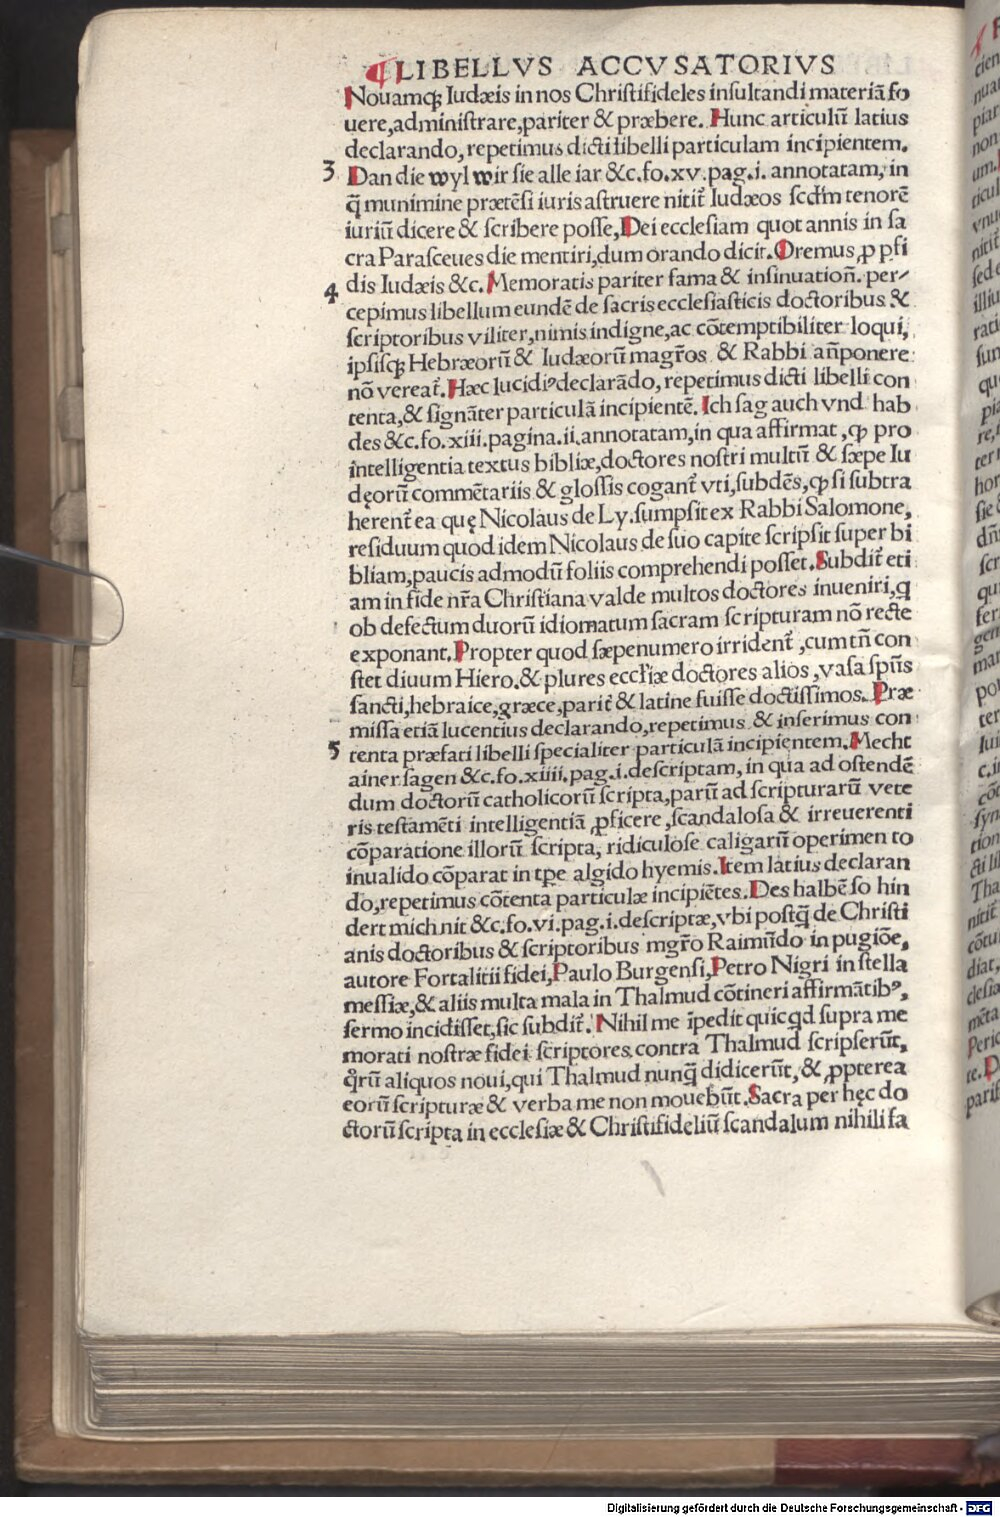 ¶ LIBELLVS ACCVSATORIVS
Nouamqꝫ Iudæis in nos Christifideles insultandi materiā fo
uere, administrare, pariter & præbere. Hunc articulū latius
declarando, repetimus dicti libelli particulam incipientem.
3 Dan die wyl wir sie alle iar &c. fo. xv. pag. i. annotatam, in
q̄ munimine prætēsi iuris astruere nitit᷑ Iudæos scd̄m tenorē
iuriū dicere & scribere posse, Dei ecclesiam quot annis in sa
cra Parasceues die mentiri, dum orando dicit. Oremus, ꝓ ꝑfi
dis Iudæis &c. Memoratis pariter fama & insinuation̄. per⸗
4 cepimus libellum eundē de sacris ecclesiasticis doctoribus &
scriptoribus viliter, nimis indigne, ac cōtemptibiliter loqui,
ipsisqꝫ Hebræorū & Iudæorū magr̄os & Rabbi an̄ponere
nō vereat᷑. Hæc lucidiꝰ declarādo, repetimus dicti libelli con
tenta, & signāter particulā incipientē. Ich sag auch vnd hab
des &c. fo. xiii. pagina. ii. annotatam, in qua affirmat, ꝙ pro
intelligentia textus bibliæ, doctores nostri multū & sæpe Iu
dęorū commētariis & glossis cogant᷑ vti, subdēs, ꝙ si subtra
herent᷑ ea quę Nicolaus de Ly. sumpsit ex Rabbi Salomone,
residuum quod idem Nicolaus de suo capite scripsit super bi
bliam, paucis admodū foliis comprehendi posset. Subdit᷑ eti
am in fide nr̄a Christiana valde multos doctores inueniri, q
ob defectum duorū idiomatum sacram scripturam nō recte
exponant. Propter quod sæpenumero irrident᷑, cum tn̄ con
stet diuum Hiero. & plures eccl̄iæ doctores alios, vasa spūs
sancti, hebraice, græce, parit᷑ & latine fuisse doctissimos. Præ
missa etiā lucentius declarando, repetimus & inserimus con
5 tenta præfati libelli specialiter particulā incipientem. Mecht
ainer sagen &c. fo. xiiii. pag. i. descriptam, in qua ad ostendē
dum doctorū catholicorū scripta, parū ad scripturarū vete
ris testamēti intelligentiā ꝓficere, scandalosa & irreuerenti
cōparatione illorū scripta, ridiculose caligarū operimento
inualido cōparat in tp̄e algido hyemis. Item latius declaran
do, repetimus cōtenta particulæ incipiētes. Des halbē so hin
dert mich nit &c. fo. vi. pag. i. descriptæ, vbi postq̄ de Christi
anis doctoribus & scriptoribus mgr̄o Raimūdo in pugiōe,
autore Fortalitii fidei, Paulo Burgensi, Petro Nigri in stella
messiæ, & aliis multa mala in Thalmud cōtineri affirmātibꝰ,
sermo incidisset, sic subdit᷑. Nihil me īpedit quicqd supra me
morati nostræ fidei scriptores contra Thalmud scripserūt,
q̊rū aliquos noui, qui Thalmud nunq̄ didicerūt, & ꝓpterea
eorū scripturæ & verba me non mouebūt. Sacra per hęc do
ctorū scripta in ecclesiæ & Christifideliū scandalum nihili fa
Digitalisierung gefördert durch die Deutsche Forschungsgemeinschaft - DFG